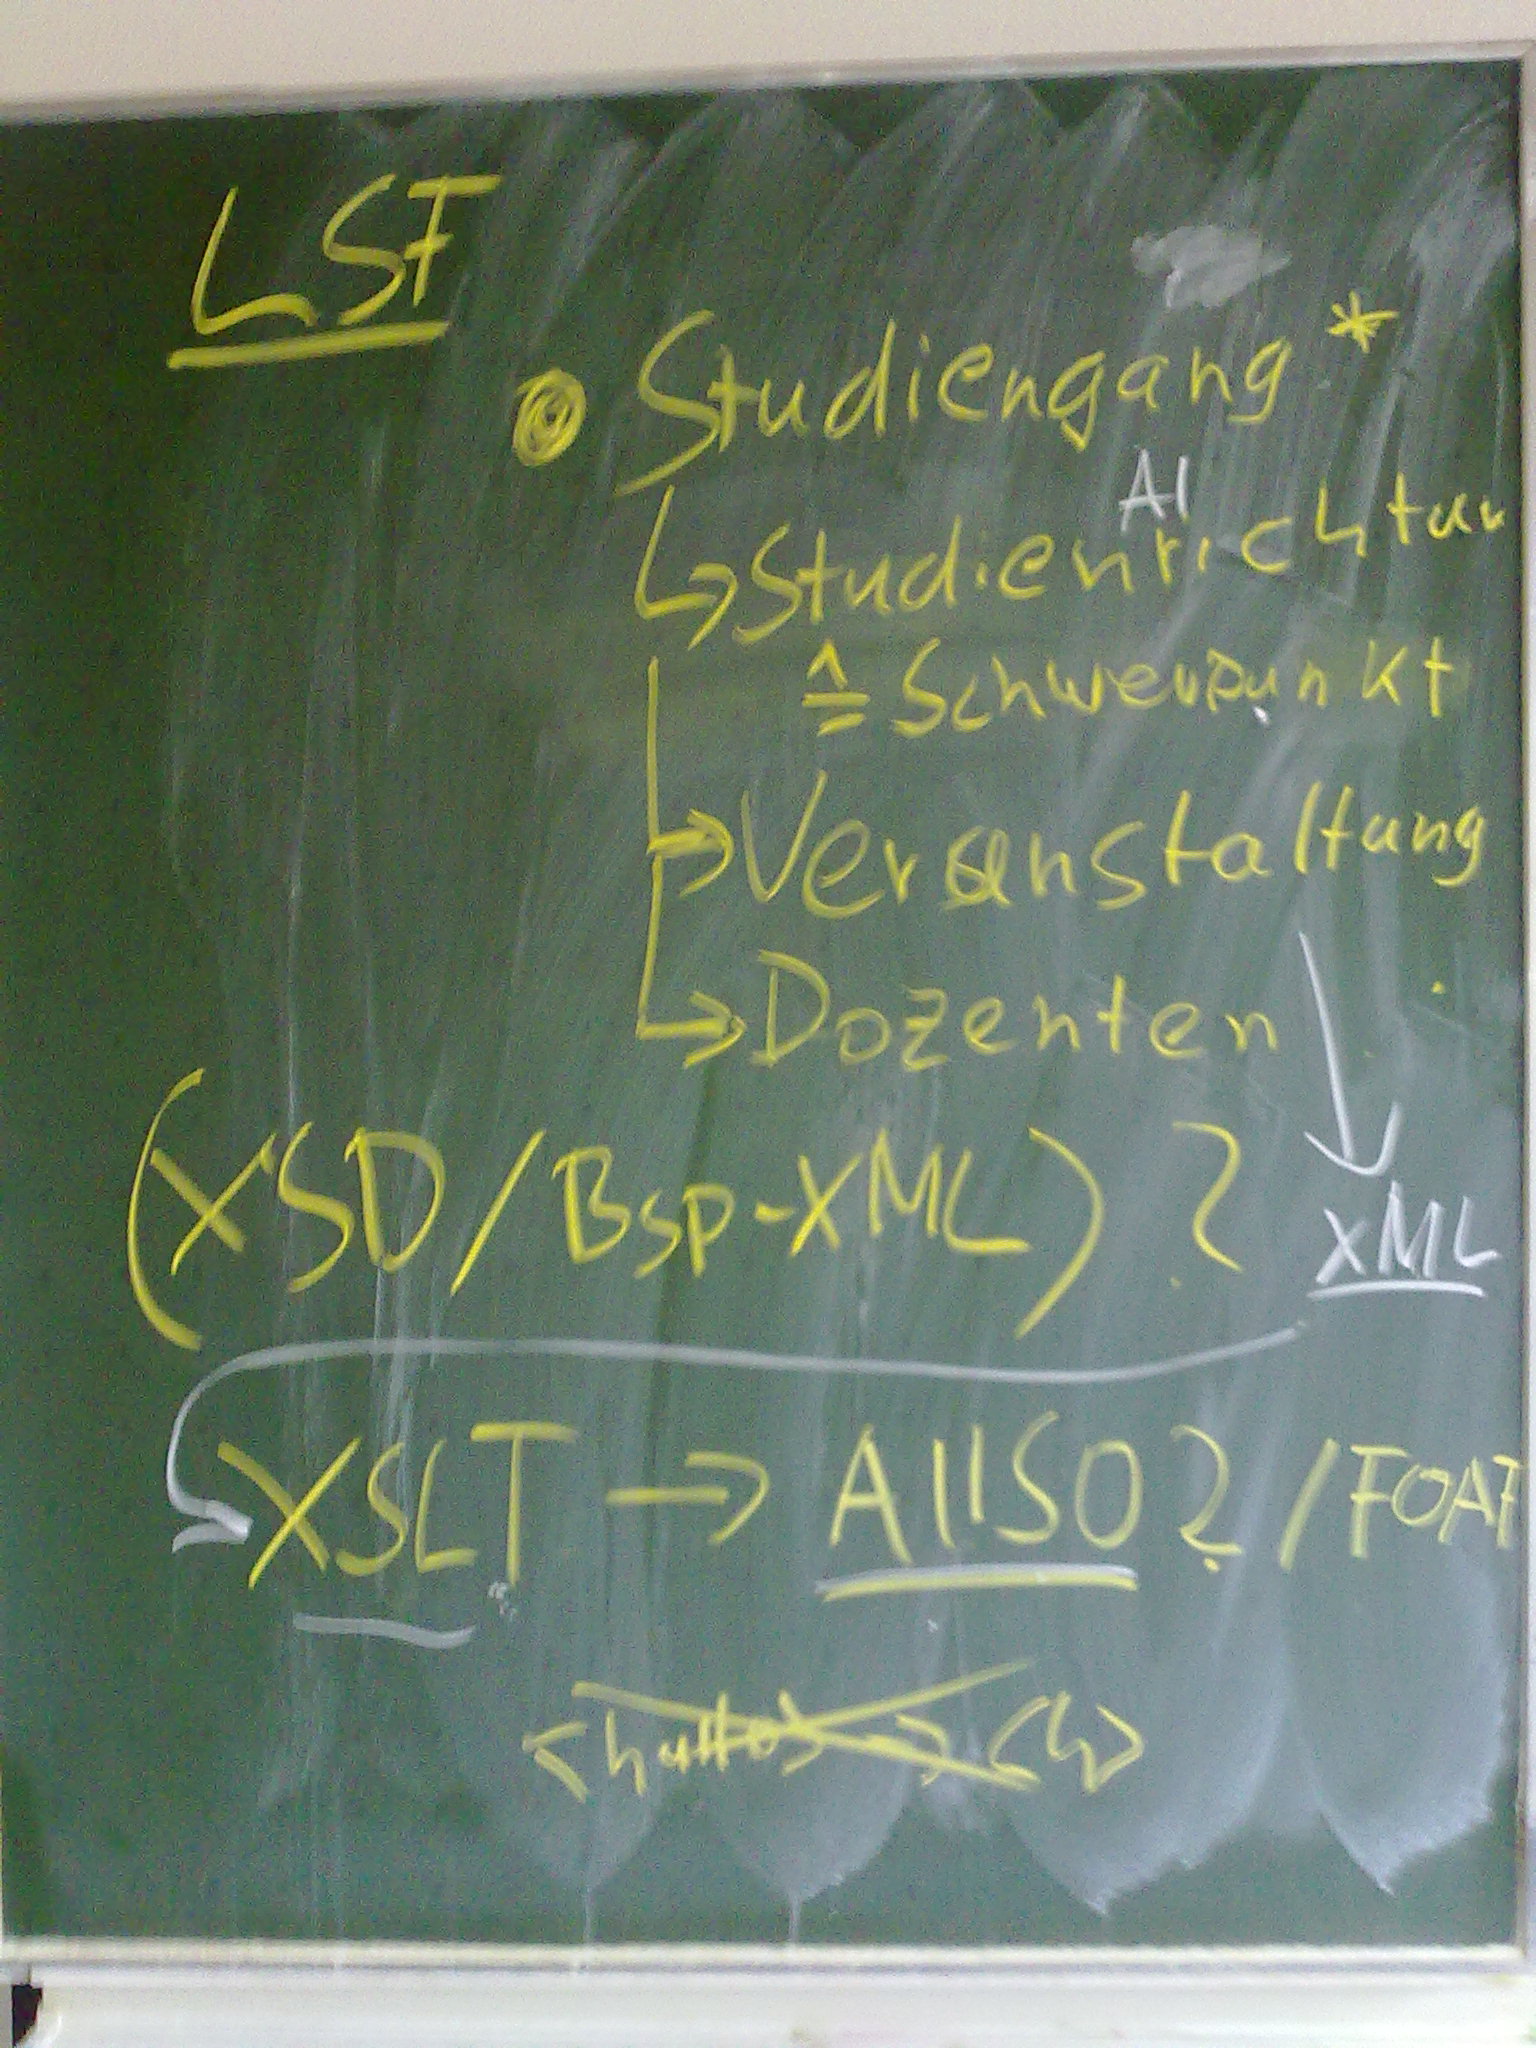 LSF
Studiengang*
AI
↳ Studienrichtun
≙ Schwerpunkt
→ Veranstaltung
→ Dozenten
(XSD/Bsp-XML)?
XML
XSLT → AIISO? / FOAF